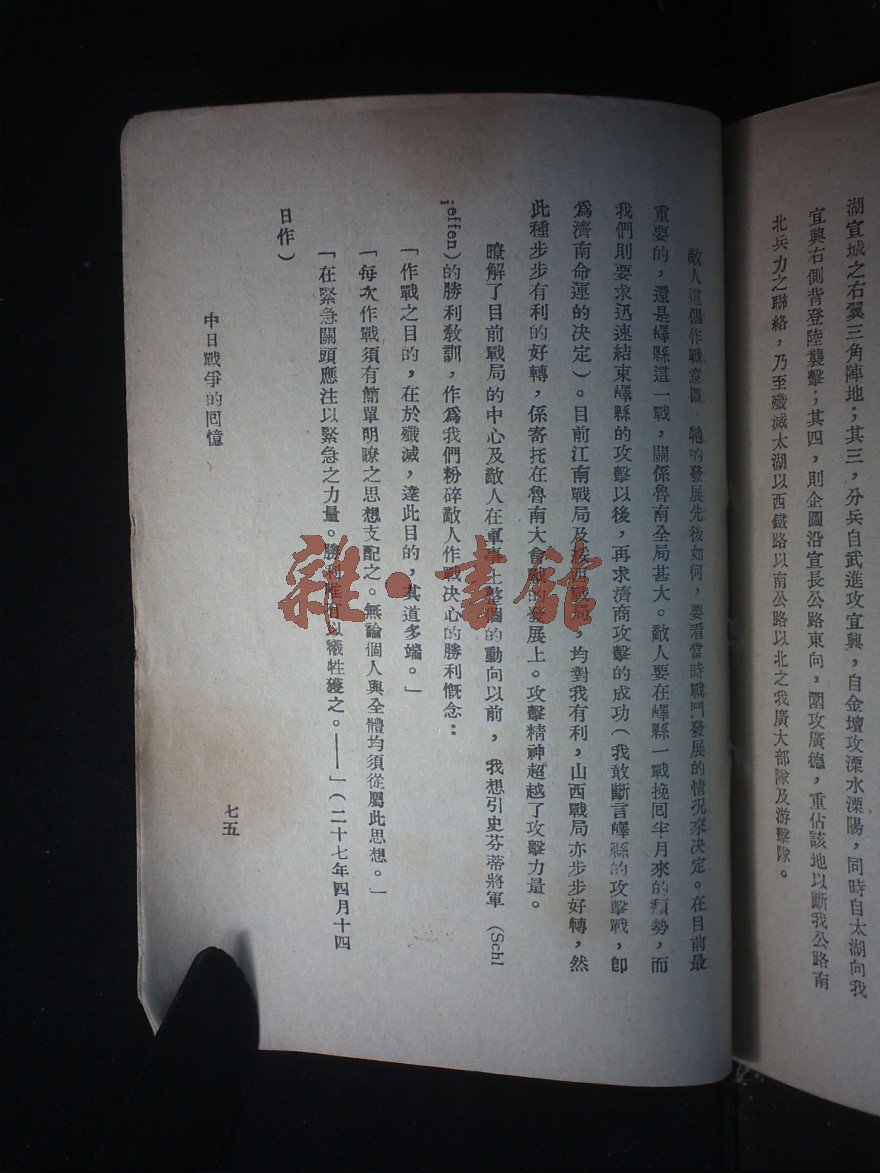 湖宣城之右翼三角陣地；其三，分兵自武進攻宜興，自金壇攻溧水溧陽，同時自太湖向我
宜興右側背登陸襲擊；其四，則企圖沿宣長公路東向，圍攻廣德，重佔該地以斷我公路南
北兵力之聯絡，乃至殲滅太湖以西鐵路以南公路以北之我廣大部隊及游擊隊。
敵人這個作戰意圖，牠的發展先後如何，要看當時戰鬥發展的情況來决定。在目前最
重要的，還是嶧縣這一戰，關係魯南全局甚大。敵人要在嶧縣一戰挽回半月來的頹勢，而
我們則要求迅速結束嶧縣的攻擊以後，再求濟商攻擊的成功（我敢斷言嶧縣的攻擊戰，卽
爲濟南命運的决定）。目前江南戰局及綏西戰局，均對我有利，山西戰局亦步步好轉，然
此種步步有利的好轉，係寄托在魯南大會戰的發展上。攻擊精神超越了攻擊力量。
瞭解了目前戰局的中心及敵人在軍事上整個的動向以前，我想引史芬蒂將軍（Schl
ieffen）的勝利教訓，作爲我們粉碎敵人作戰决心的勝利慨念：
「作戰之目的，在於殲滅，達此目的，其道多端。」
「每次作戰須有簡單明瞭之思想支配之。無論個人與全體均須從屬此思想。」
「在緊急關頭應注以緊急之力量。勝利唯有以犧牲獲之。——」（二十七年四月十四
日作）
中日戰爭的回憶
七五
雜·書館